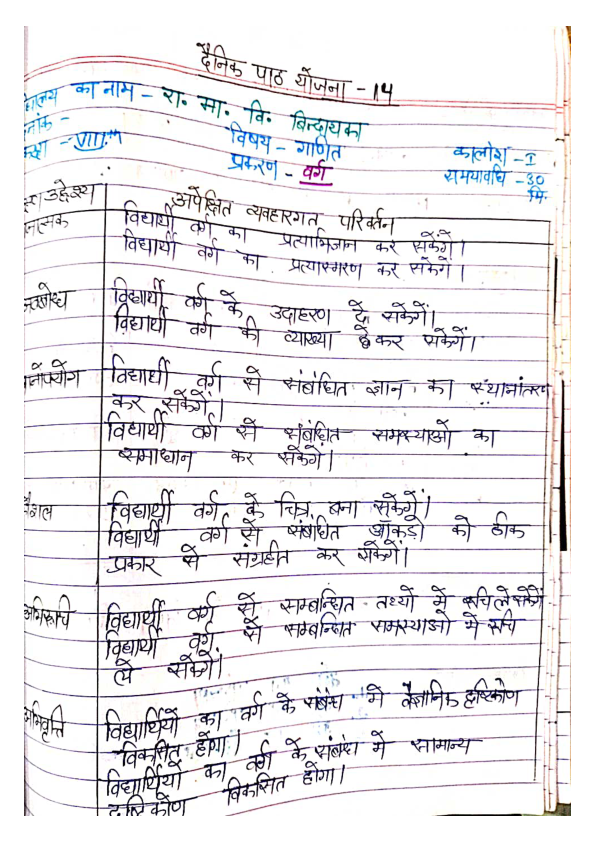 दैनिक पाठ योजना - 14
का नाम - रा. मा. वि. बिन्दायका
विषय - गणित कालांश - I
- VIIIth प्रकरण - वर्ग समयावधि - 30
मि.
उद्देश्य अपेक्षित व्यवहारगत परिवर्तन
विद्यार्थी वर्ग का प्रत्याभिज्ञान कर सकेंगे।
विद्यार्थी वर्ग का प्रत्यास्मरण कर सकेंगे।
विद्यार्थी वर्ग के उदाहरण दे सकेगें।
विद्यार्थी वर्ग की व्याख्या कर सकेगें।
विद्यार्थी वर्ग से संबंधित ज्ञान का स्थानांतरण
कर सकेगें।
विद्यार्थी वर्ग से संबंधित समस्याओं का
समाधान कर सकेंगे।
विद्यार्थी वर्ग के चित्र बना सकेगें।
विद्यार्थी वर्ग से संबंधित आँकड़ो को ठीक
प्रकार से संग्रहीत कर सकेगें।
अभिरूचि विद्यार्थी वर्ग से सम्बन्धित तथ्यों में रूचि ले सकेगें
विद्यार्थी वर्ग से सम्बन्धित समस्याओं में रूचि
ले सकेगें।
अभिवृत्ति विद्यार्थियों का वर्ग के संबंध में वैज्ञानिक दृष्टिकोण
विकसित होगा।
विद्यार्थियों का वर्ग के संबंध में सामान्य
दृष्टिकोण विकसित होगा।